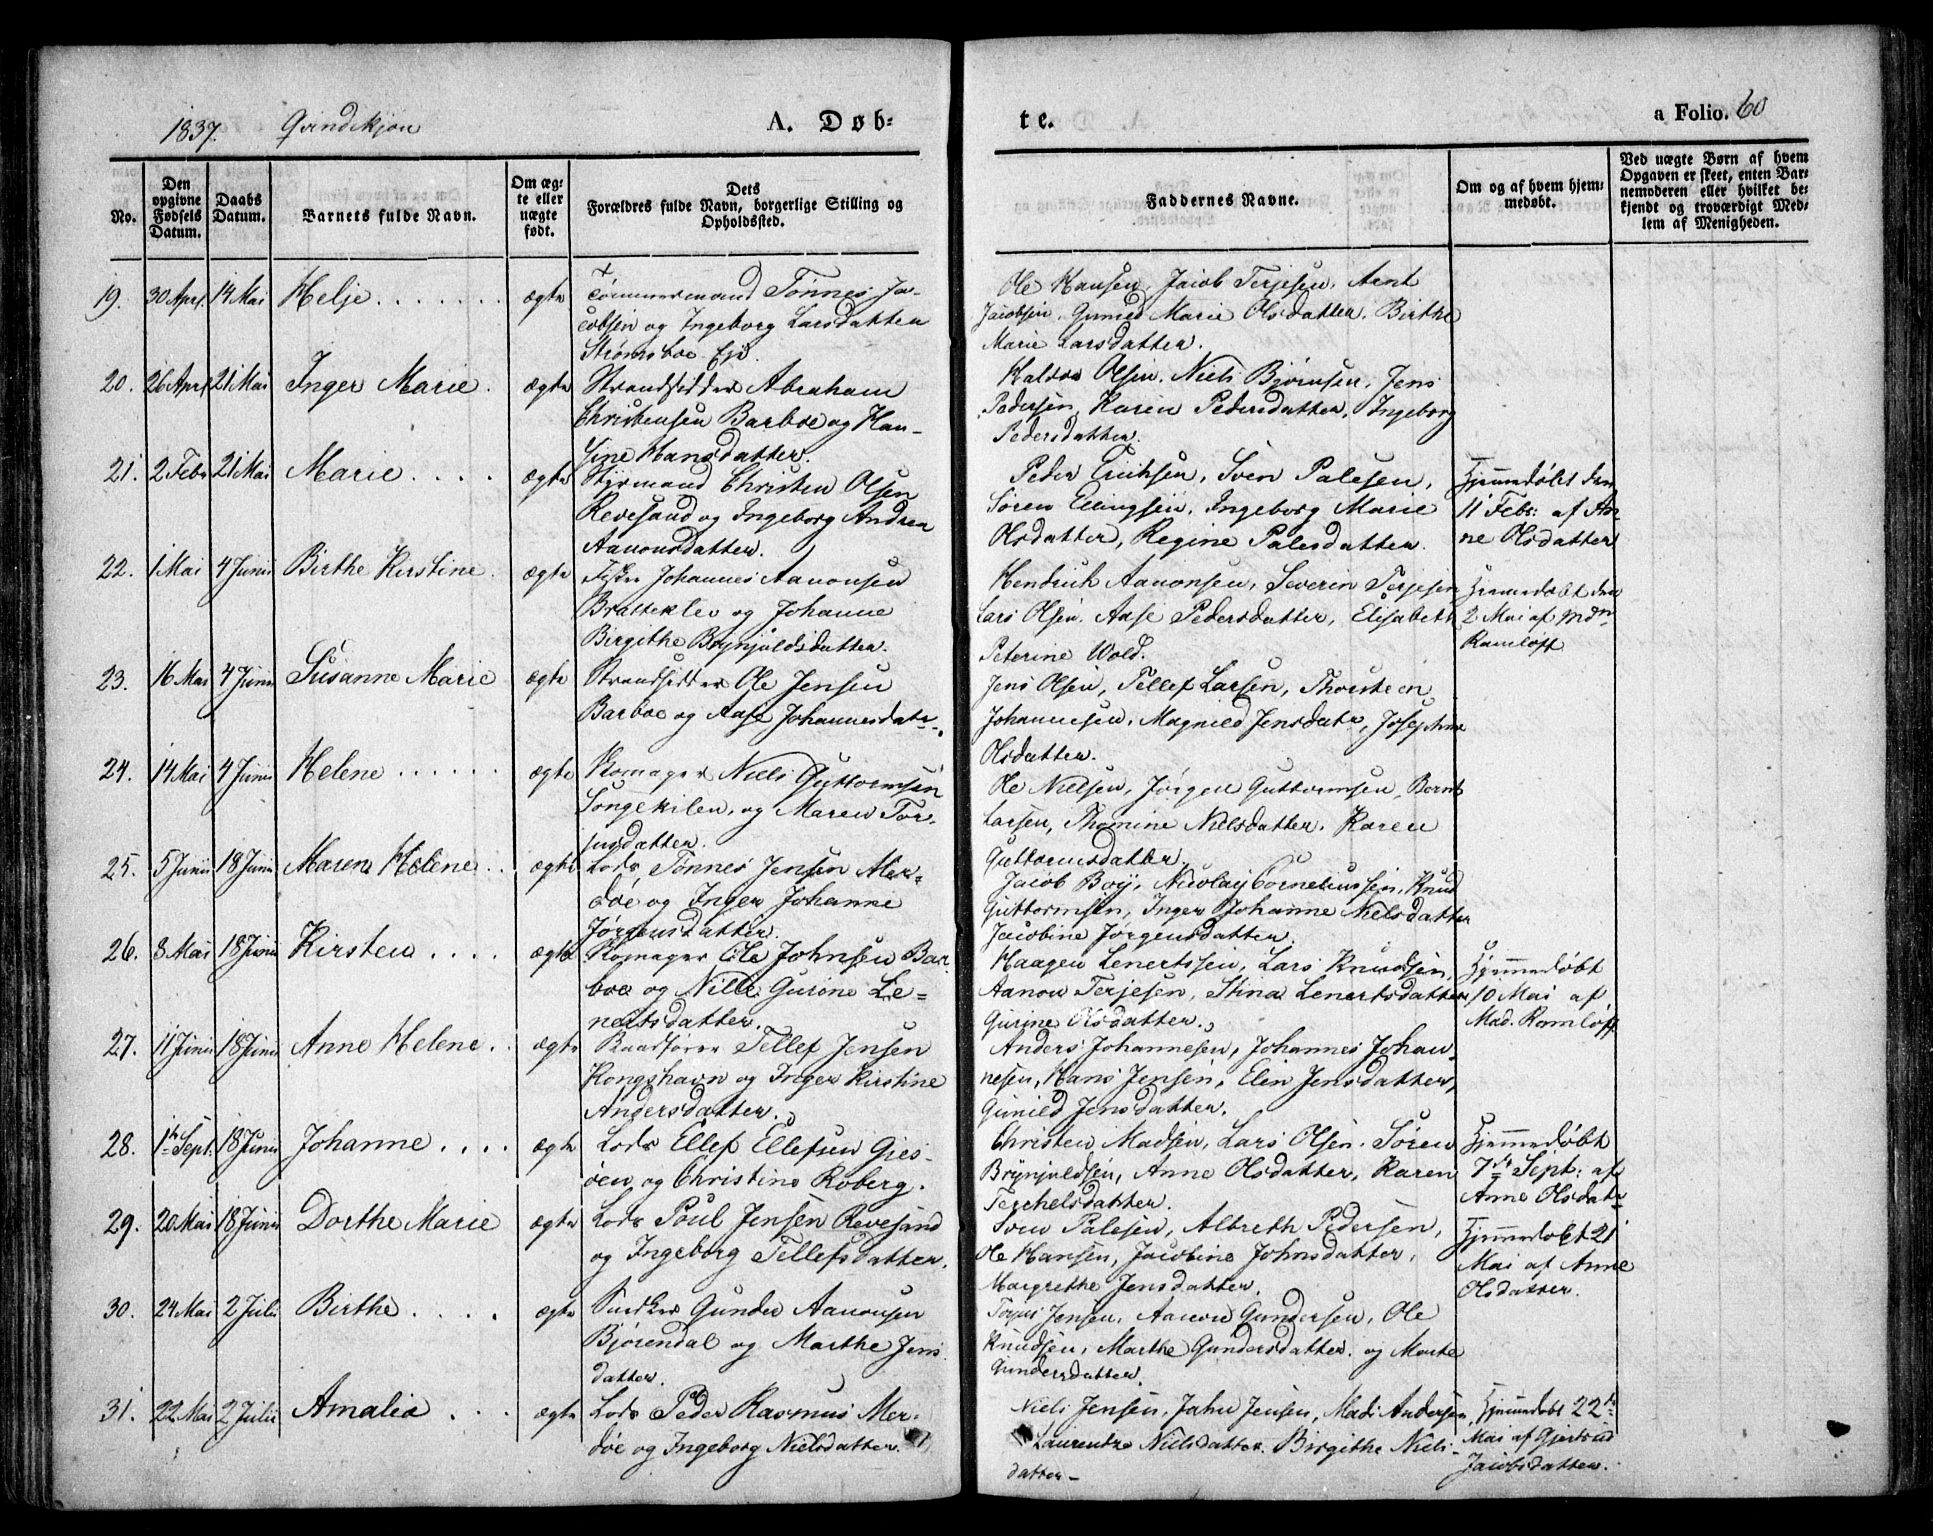 1837. Qvindekjøn A. Døb-
te. a Folio. 60
No.
Den opgivne Fødsels Datum.
Daabs Datum.
Barnets fulde Navn.
Om ægte eller uægte født.
Dets Forældres fulde Navn, borgerlige Stilling og Opholdssted.
Faddernes Navne.
Om og af hvem hjemmedøbt.
Ved uægte Børn af hvem Opgaven er skeet, enten Barnemoderen eller hvilket bekjendt og troværdigt Medlem af Menigheden.
19. 30 Apr. 14 Mai Helje ægte Tømmermand Tønnes Ja-
cobsen og Ingeborg Larsdatter
Strømsboe Eje.
Ole Hansen, Jacob Terjesen, Arnt
Jacobsen, Gunild Marie Olsdatter, Birthe
Marie Larsdatter.
20. 26 Apr. 21 Mai Inger Marie. ægte Strandsidder Abraham
Christensen Barboe og Han-
sine Hansdatter.
Halvor Olsen, Niels Bjørnsen, Jens
Pedersen, Karen Pedersdatter, Ingeborg
Pedersdatter.
21. 2 Febr 21 Mai Marie ægte Styrmand Christen Olsen
Revesand og Ingeborg Andrea
Aanonsdatter.
Peder Eriksen, Sven Palesen,
Søren Ellingsen, Ingeborg Marie
Olsdatter, Regine Palesdatter.
Hjemmedøbt den
11 Febr: af An-
ne Olsdatter
22. 1 Mai 4 Junii Birthe Kirstine. ægte Fisker Johannes Aanonsen
Bratteklev og Johanne
Birgithe Brynjuldsdatter.
Hendrich Aanonsen, Severin Terjesen
Lars Olsen, Aase Pedersdatter, Elisabeth
Peterine Wold.
Hjemmedøbt den
2 Mai af Mdm
Ramløff
23. 16 Mai 4 Junii Susanne Marie ægte Strandsidder Ole Jensen
Barboe og Aase Johannesdatr.
Jens Olsen, Tellef Larsen, Thorsteen
Johannesen, Magnild Jensdatr, Josephine
Olsdatter.
24. 14 Mai 4 Junii Helene ægte Skomager Niels Guttormsen
Songekilen, og Maren Tor-
jusdatter.
Ole Nielsen, Jørgen Guttormsen, Bernt
Larsen, Thomine Nielsdatter. Karen
Guttormsdatter.
25. 5 Junii 18 Junii Maren Helene ægte Lods Tønnes Jensen Mer-
døe og Inger Johanne
Jørgensdatter.
Jacob Boij, Nicolay Corneliussen, Knud
Guttormsen, Inger Johanne Nielsdatter
Jacobine Jørgensdatter.
26. 8 Mai 18 Junii Kirsten ægte Skomager Ole Johnsen Bar-
boe og Nille Gurine Le-
nertsdatter.
Haagen Lenertssen, Lars Knudsen,
Aanon Terjesen, Stina Lenertsdatter
Gurine Olsdatter.
Hjemmedøbt
10 Mai af
Mad. Romløff
27. 11 Junii 18 Junii Anne Helene ægte Baadfører Tellef Jensen
Kongshavn og Inger Kirstine
Andersdatter.
Anders Johannesen, Johannes Johan-
nesen, Hans Jensen, Elen Jensdatter,
Gunild Jensdatter.
28. 1ste Sept. 18 Junii Johanne ægte Lods Ellef Ellefsen Gjes-
øen, og Christine Roberg.
Christen Madsen, Lars Olsen, Søren
Brynjuldsen, Anne Olsdatter, Karen
Terchelsdatter.
Hjemmedøbt
7de Sept: af
Anne Olsdatr
29. 20 Mai 18 Junii Dorthe Marie ægte Lods Poul Jensen Revesand
og Ingeborg Tellefsdatter.
Sven Palesen, Albreth Pedersen,
Ole Hansen, Jacobine Johnsdatter,
Margrethe Jensdatter.
Hjemmedøbt 21
Mai af Anne
Olsdatter.
30. 24 Mai 2 Julii Birthe ægte Snedker Gunder Aanonsen
Bjørendal og Marthe Jens
datter.
Torjus Jensen, Aanon Gundersen, Ole
Knudsen, Marthe Gundersdatter. og Marte
Gundersdatter.
31. 22 Mai 2 Julii Amalia ægte Lods Peder Rasmus Mer-
døe og Ingeborg Nielsdatter.
Niels Jensen, Jahn Jensen, Mads Andersen,
Laurendze Nielsdatter. Birgithe Niels-
datter-
Hjemmedøbt 22de
Mai af Gjertrud
Jacobsdatter.